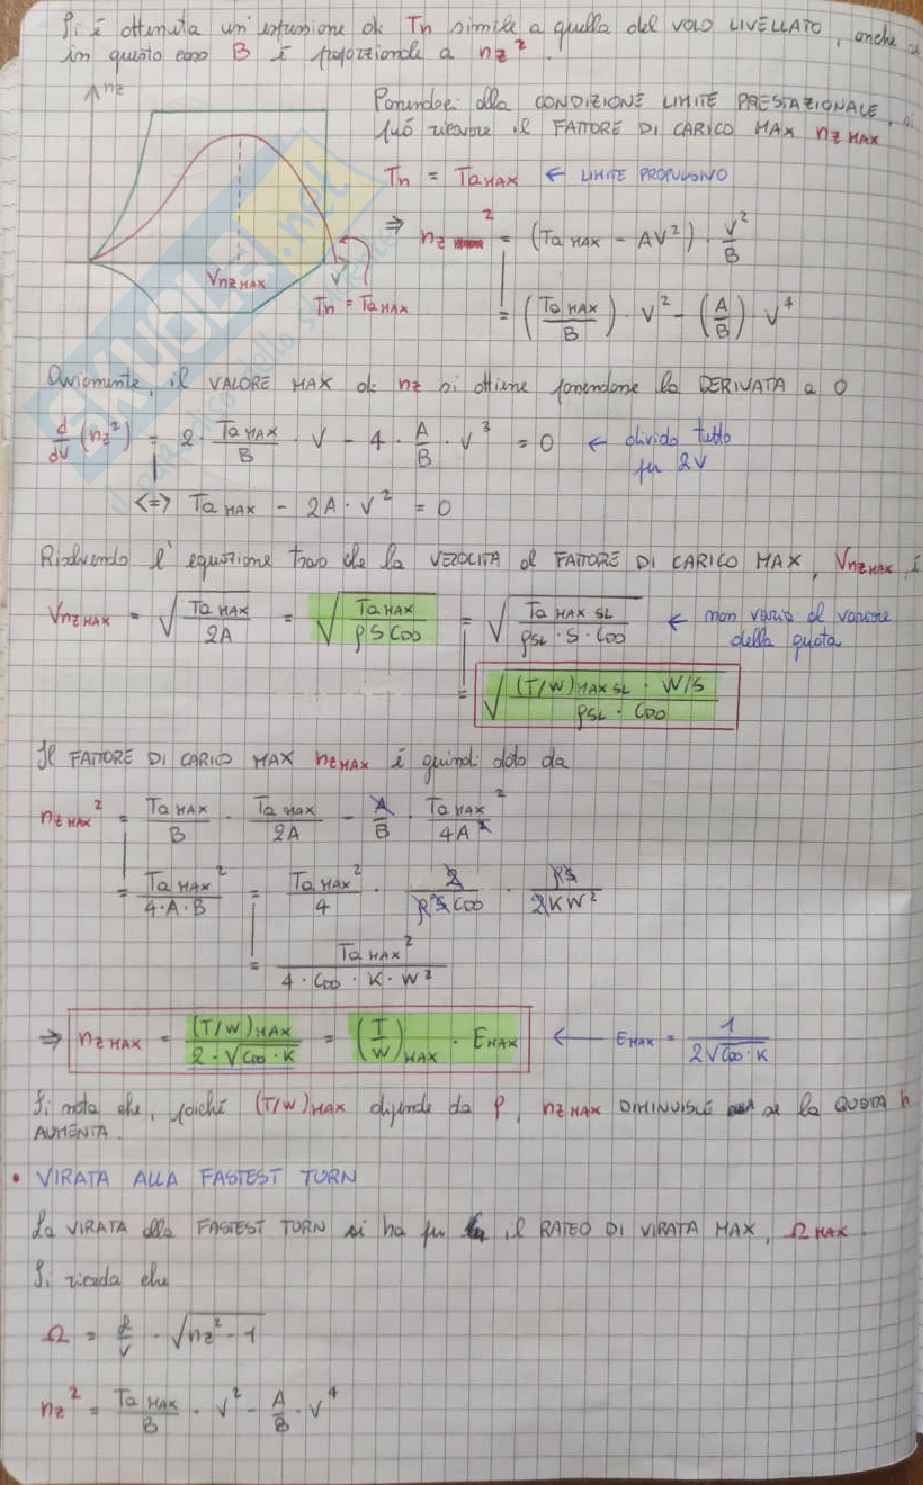 Si è ottenuta un'espressione di Tn simile a quella del VOLO LIVELLATO, anche se
in questo caso B è proporzionale a nz².
nz
Ponendosi alla CONDIZIONE LIMITE PRESTAZIONALE, si
può ricavare il FATTORE DI CARICO MAX nz MAX
Tn = Ta MAX ← LIMITE PROPULSIVO
⇒ nz² = (Ta MAX - AV²) · V²/B
= (Ta MAX/B) · V² - (A/B) · V⁴
V nz MAX
V
Tn = Ta MAX
Ovviamente, il VALORE MAX di nz si ottiene ponendone la DERIVATA a 0
d/dV (nz²) = 2 · Ta MAX/B · V - 4 · A/B · V³ = 0 ← divido tutto
per 2V
<=> Ta MAX - 2A · V² = 0
Risolvendo l'equazione trovo che la VELOCITÀ al FATTORE DI CARICO MAX, V nz MAX, è
V nz MAX = √(Ta MAX/2A) = √(Ta MAX/ρSCD0) = √(Ta MAX SL/ρSL · S · CD0) ← non varia al variare
della quota
= √((T/W)MAX SL · W/S / ρSL · CD0)
Il FATTORE DI CARICO MAX nz MAX è quindi dato da
nz MAX² = Ta MAX/B · Ta MAX/2A - A/B · Ta MAX²/4A²
= Ta MAX²/4·A·B = Ta MAX²/4 · 2/ρSCD0 · ρS/2KW²
= Ta MAX²/4 · CD0 · K · W²
⇒ nz MAX = (T/W)MAX/2 · √CD0 · K = (T/W)MAX · EMAX ← EMAX = 1/2√CD0 · K
Si nota che, poiché (T/W)MAX dipende da ρ, nz MAX DIMINUISCE se la QUOTA h
AUMENTA.
• VIRATA ALLA FASTEST TURN
La VIRATA alla FASTEST TURN si ha per il RATEO DI VIRATA MAX, Ω MAX.
Si ricorda che
Ω = g/V · √nz² - 1
nz² = Ta MAX/B · V² - A/B · V⁴
SKUOLA.net